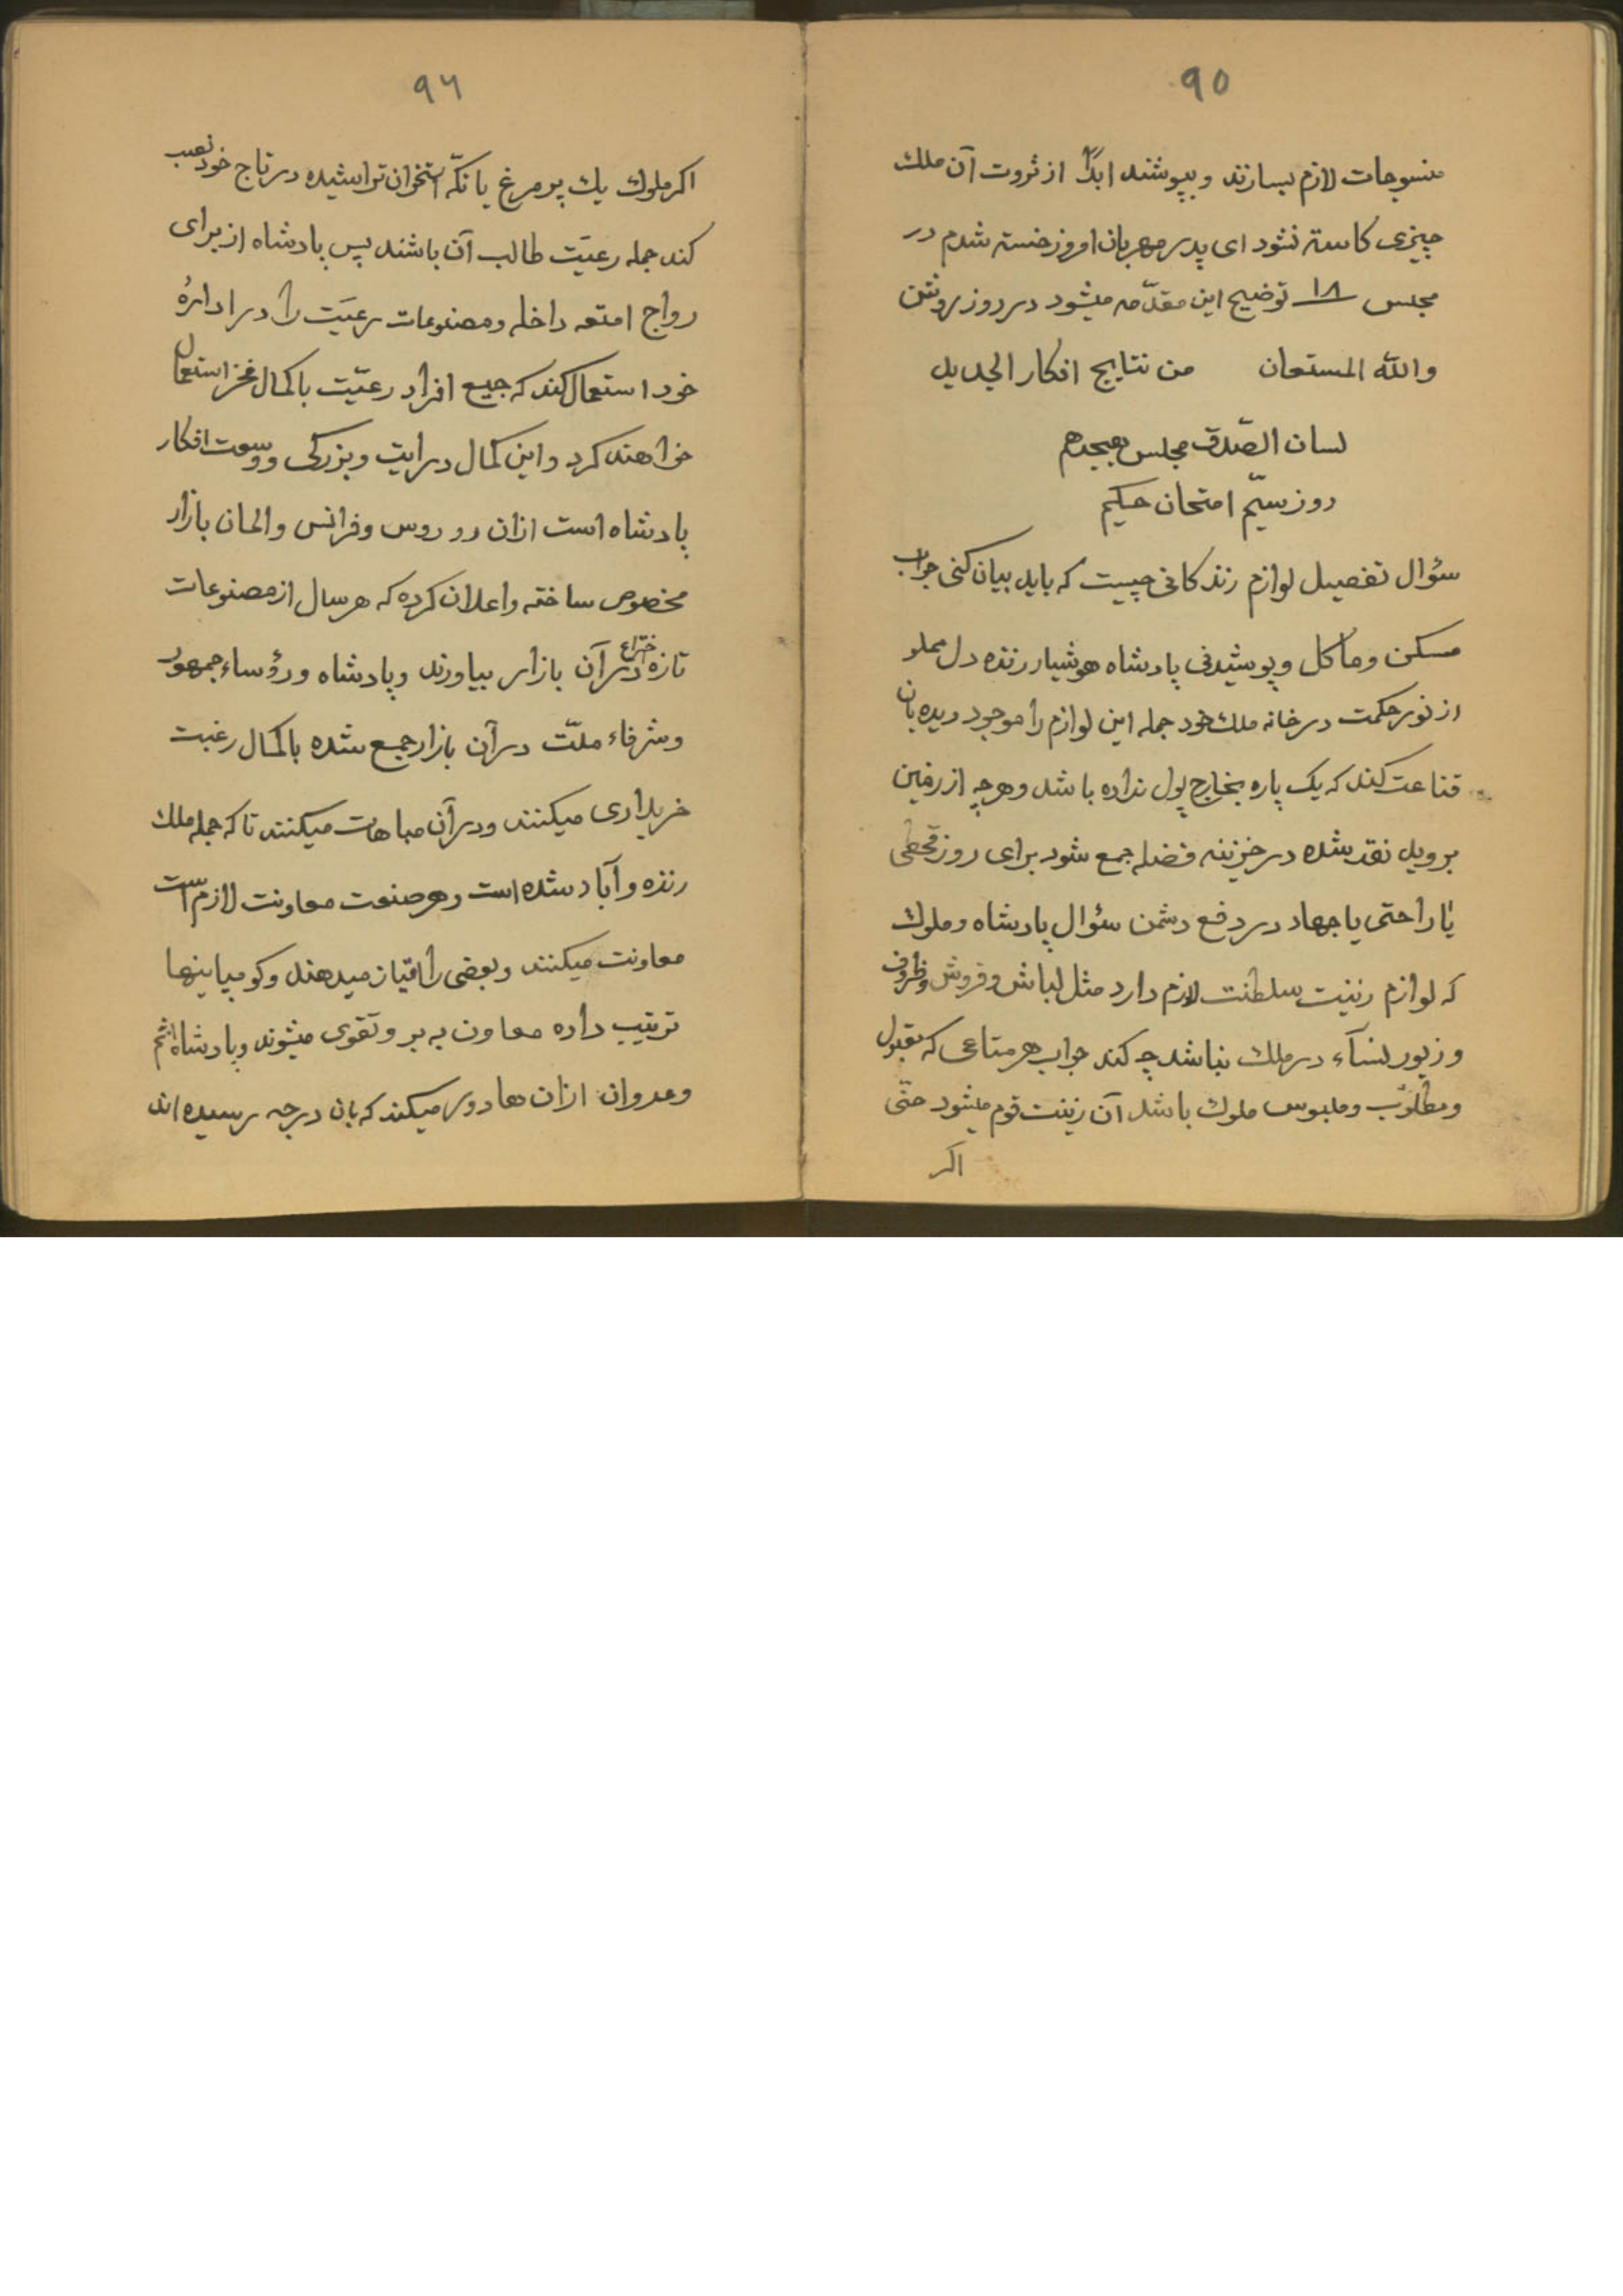 ٩٥
منسوجات لازم بسازند و بپوشند ابدًا از ثروت آن ملك
چیزی كاسته نشود ای پدر مهربان امروز خسته شدم در
مجلس ١٨ توضیح این مقدّمه میشود در روز روشن
والله المستعان من نتایج افكار الجدید
لسان الصّدق مجلس هیجدهم
روز سیّم امتحان حكیم
سؤال تفصیل لوازم زندكانی چیست كه باید بیان كنی جواب
مسكن و مأكل و پوشیدنی پادشاه هوشیار زنده دل مملو
از نور حكمت در خانه ملك خود جمله این لوازم را موجود دیده بان
قناعت كند كه یك پاره بخارج پول نداده باشد و هرچه از زمین
بروید نقد شده در خزینه فضله جمع شود برای روز قحطی
یا راحتی یا جهاد در دفع دشمن سؤال پادشاه و ملوك
كه لوازم زینت سلطنت لازم دارد مثل لباس و فروش و ظروف
و زیور نسآء در ملك نباشد چه كند جواب هر متاعی كه مقبول
و مطلوب و ملبوس ملوك باشد آن زینت قوم میشود حتّی
اكر
٩٦
اكر ملوك یك پر مرغ یا تكّه استخوان تراشیده در تاج خود نصب
كند جمله رعیّت طالب آن باشند پس پادشاه از برای
رواج امتعه داخله و مصنوعات رعیّت را در ادارهٔ
خود استعمال كند كه جمیع افراد رعیّت با كمال فخر استعمال
خواهند كرد و این كمال درایت و بزركی و وسعت افكار
پادشاه است ازان رو روس و فرانس و المان بازار
مخصوص ساخته و اعلان كرده كه هر سال از مصنوعات
تازه اختراع در آن بازار بیاورند و پادشاه و رؤساء جمهور
و شرفاء ملّت در آن بازار جمع شده با كمال رغبت
خریداری میكنند و در آن مباهات میكنند تا كه جمله ملك
زنده و آباد شده است و هر صنعت معاونت لازم است
معاونت میكنند و بعضی را امتیاز میدهند و كومپانیها
ترتیب داده معاون به بر و تقوی میشوند و پادشاه اثم
و عدوان ازان ها دور میكند كه بان درجه رسیده اند